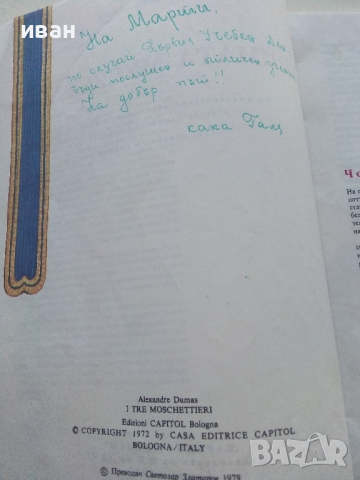 иван
На Марти,
по случай Първия Учебен ден
бъди послушен и отличен ученик
На добър път!!
кака Галя
Alexandre Dumas
I TRE MOSCHETTIERI
Edizioni CAPITOL Bologna
© COPYRIGHT 1972 by CASA EDITRICE CAPITOL
BOLOGNA/ITALY
© Преводач Светозар Златаров 1979
bazar